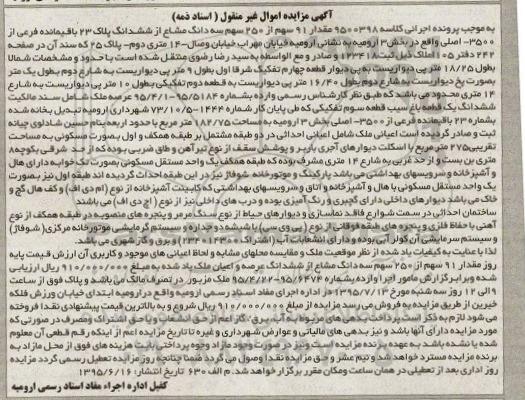 آگهی مزایده اموال غیر منقول ( اسناد ذمه)
به موجب پرونده اجرائی کلاسه ۹۵۰۰۳۹۸ مقدار ۹۱ سهم از ۲۵۰ سهم سه دانگ مشاع از ششدانگ پلاک ۲۳ باقیمانده فرعی از
۳۵۰۰- اصلی واقع در بخش ۳ ارومیه به نشانی ارومیه خیابان مهراب خیابان وصال-۱۴ متری دوم- پلاک ۲۵ که سند آن در صفحه
۲۴۲ دفتر ۱۰۱ املاک ذیل ثبت ۱۲۳۴۱۸ صادر و مع الواسطه به سید رضا رضوی منتقل شده است با حدود و مشخصات شمالا
بطول ۱۸/۲۵ متر پی دیواریست به پی دیوار قطعه چهارم تفکیک شرقا اول بطول ۹ متر پی دیواریست به شارع دوم بطول یک متر
بصورت پخ دیواریست به شارع دوم بطول ۱۶/۴۰ متر پی دیواریست به قطعه دوم تفکیکی بطول ۱۰ متر پی دیواریست به شارع
۱۴ متری محدود می باشد که طبق نظر کارشناس رسمی وارده بشماره ۹۵/۵۱۸۴-۹۵/۴/۱ عرصه ملک شامل سند مالکیت
ششدانگ یک قطعه باغ سیب قطعه سوم تفکیکی که طی پایان کار شماره ۱۴۴۴-۷۳/۱۰/۵ شهرداری ارومیه تبدیل بخانه شده
بشماره ۲۳ باقیمانده فرعی از ۳۵۰۰- اصلی بخش ۳ ارومیه به مساحت ۱۸۲/۷۵ متر مربع با حدود اربعه بنام حسین باغداوی چیانه
ثبت و صادر گردیده است اعیانی ملک شامل اعیانی احداثی در دو طبقه مشتمل بر طبقه همکف و اول بصورت مسکونی به مساحت
تقریبی ۲۷۵ متر مربع با اسکلت دیوارهای آجری باربر و پوشش سقف از نوع تیر آهن و طاق ضربی بوده که از حد شرقی بکوچه ۸
متری بن بست و از حد غربی به شارع ۱۴ متری مشرف بوده که طبقه همکف یک واحد مستقل مسکونی بصورت تک خوابه دارای هال
و آشپزخانه و سرویسهای بهداشتی می باشد پارکینگ و موتورخانه شوفاژ نیز در این طبقه احداث گردیده اند طبقه اول نیز بصورت
یک واحد مستقل مسکونی با هال و آشپزخانه و اتاق و سرویسهای بهداشتی که کابینت آشپزخانه از نوع (ام دی اف) و کف هال گچ و
خاک می باشد دیوارهای داخلی دارای گچبری و رنگ آمیزی بوده و درب های داخلی نیز از نوع (اچ دی اف) می باشند
ساختمان احداثی در سمت شوارع فاقد نماسازی و دیوارهای حیاط از نوع سنگ مرمر و پنجره های منصوبه در طبقه همکف از نوع
آهنی با حفاظ فلزی و پنجره های طبقه فوقانی از نوع (پی وی سی) با شیشه دو جداره و سیستم گرمایشی موتورخانه مرکزی (شوفاژ)
و سیستم سرمایشی آن کولر آبی بوده و دارای انشعابات آب (اشتراک ۲۳۴۰۱۴۳۰۰) و برق و گاز شهری می باشد.
لذا با عنایت به کیفیات یاد شده از نظر موقعیت ملک و مقایسه محلهای مشابه و لحاظ اعیانی های موجود و کاربری آن ارزش قیمت پایه
روز مقدار ۹۱ سهم از ۲۵۰ سهم سه دانگ مشاع از ششدانگ عرصه و اعیان ملک یاد شده به مبلغ ۹۱۰/۰۰۰/۰۰۰ ریال ارزیابی
شده و برابر گزارش مامور اجرا وارده بشماره ۹۵/۶۴۷۴-۹۵/۴/۲۲ ملک مزبور در تصرف مالک می باشد و پلاک فوق از ساعت
۹ الی ۱۲ روز سه شنبه مورخ ۱۳۹۵/۷/۱۳ در اداره اجرای مفاد اسناد رسمی ارومیه واقع در ارومیه ابتدای خیابان ورزش فلکه
خیرین از طریق مزایده به فروش می رسد مزایده از مبلغ ۹۱۰/۰۰۰/۰۰۰ ریال شروع و به بالاترین قیمت پیشنهادی نقدا فروخته
می شود لازم به ذکر است پرداخت بدهی های مربوط به آب، برق، گاز اعم از حق انشعاب و یا حق اشتراک و مصرف در صورتی که
مورد مزایده دارای آنها باشد و نیز بدهی های مالیاتی و عوارض شهرداری و غیره تا تاریخ مزایده اعم از اینکه رقم قطعی آن معلوم
شده یا نشده باشد به عهده برنده مزایده است و نیز در صورت وجود مازاد وجوه پرداختی بابت هزینه های فوق از محل مازاد به
برنده مزایده مسترد خواهد شد و نیم عشر و حق مزایده نقدا وصول می گردد ضمنا چنانچه روز مزایده تعطیل رسمی گردد مزایده
روز اداری بعد از تعطیلی در همان ساعت ومکان مقرر برگزار خواهد شد. م الف ۶۳۰ تاریخ انتشار: ۱۳۹۵/۶/۱۶
کفیل اداره اجراء مفاد اسناد رسمی ارومیه